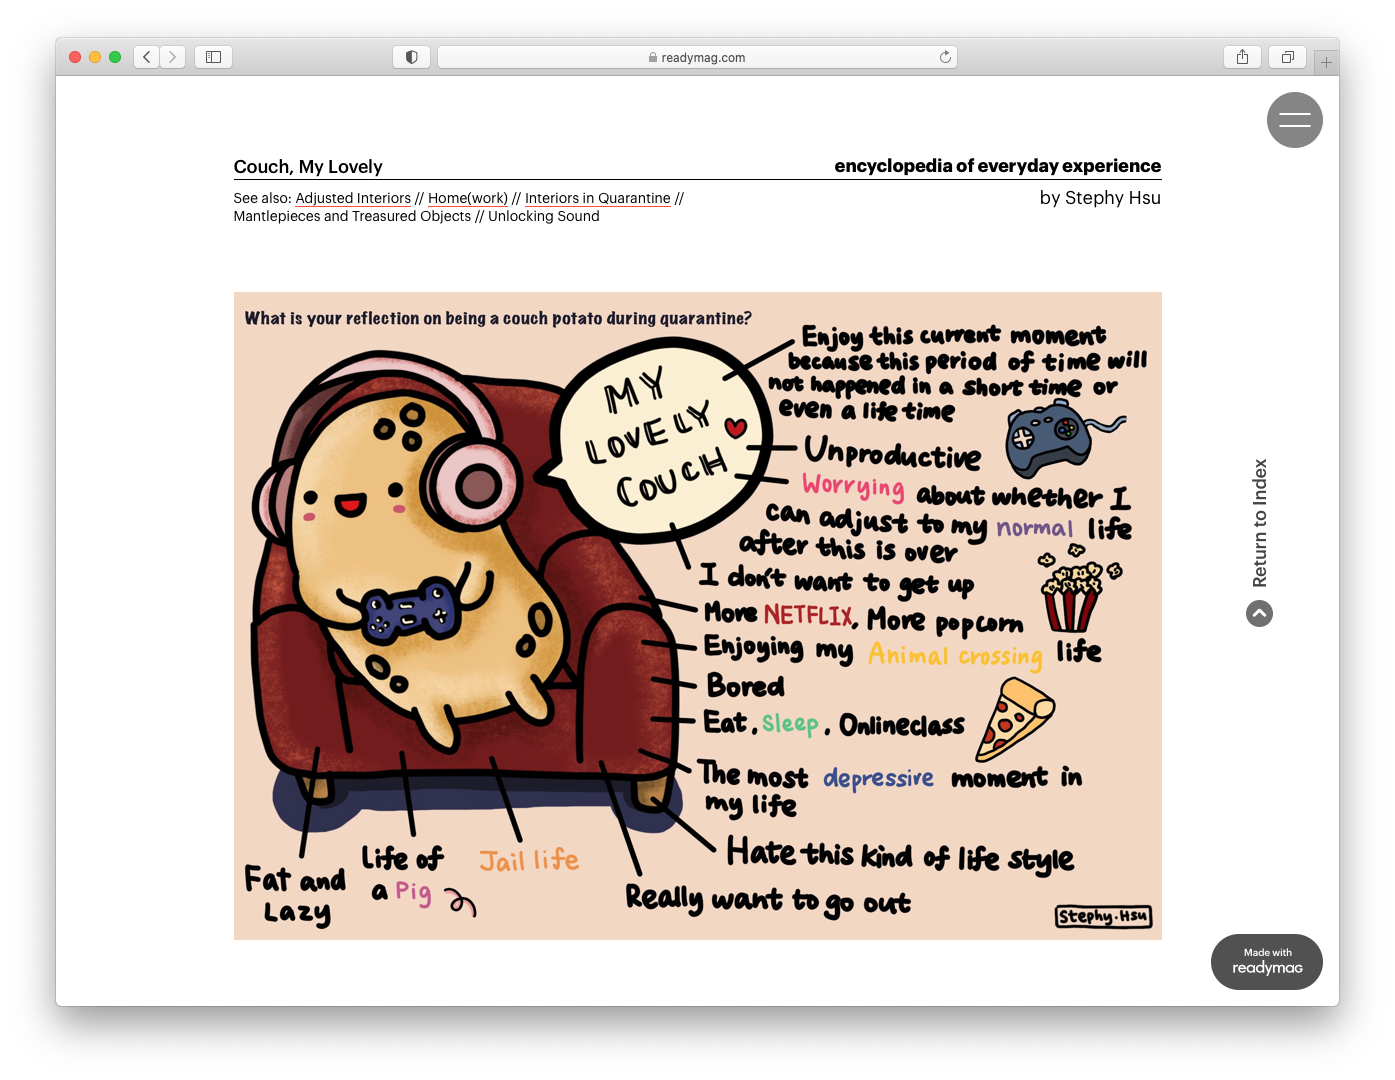 readymag.com
Couch, My Lovely
encyclopedia of everyday experience
See also: Adjusted Interiors // Home(work) // Interiors in Quarantine //
Mantlepieces and Treasured Objects // Unlocking Sound
by Stephy Hsu
What is your reflection on being a couch potato during quarantine?
MY
LOVELY
COUCH
Enjoy this current moment
because this period of time will
not happened in a short time or
even a life time
Unproductive
Worrying about whether I
can adjust to my normal life
after this is over
I don't want to get up
More NETFLIX, More popcorn
Enjoying my Animal crossing life
Bored
Eat, Sleep, Onlineclass
The most depressive moment in
my life
Hate this kind of life style
Really want to go out
Jail life
Life of
a Pig
Fat and
Lazy
Stephy.Hsu
Return to Index
Made with
readymag